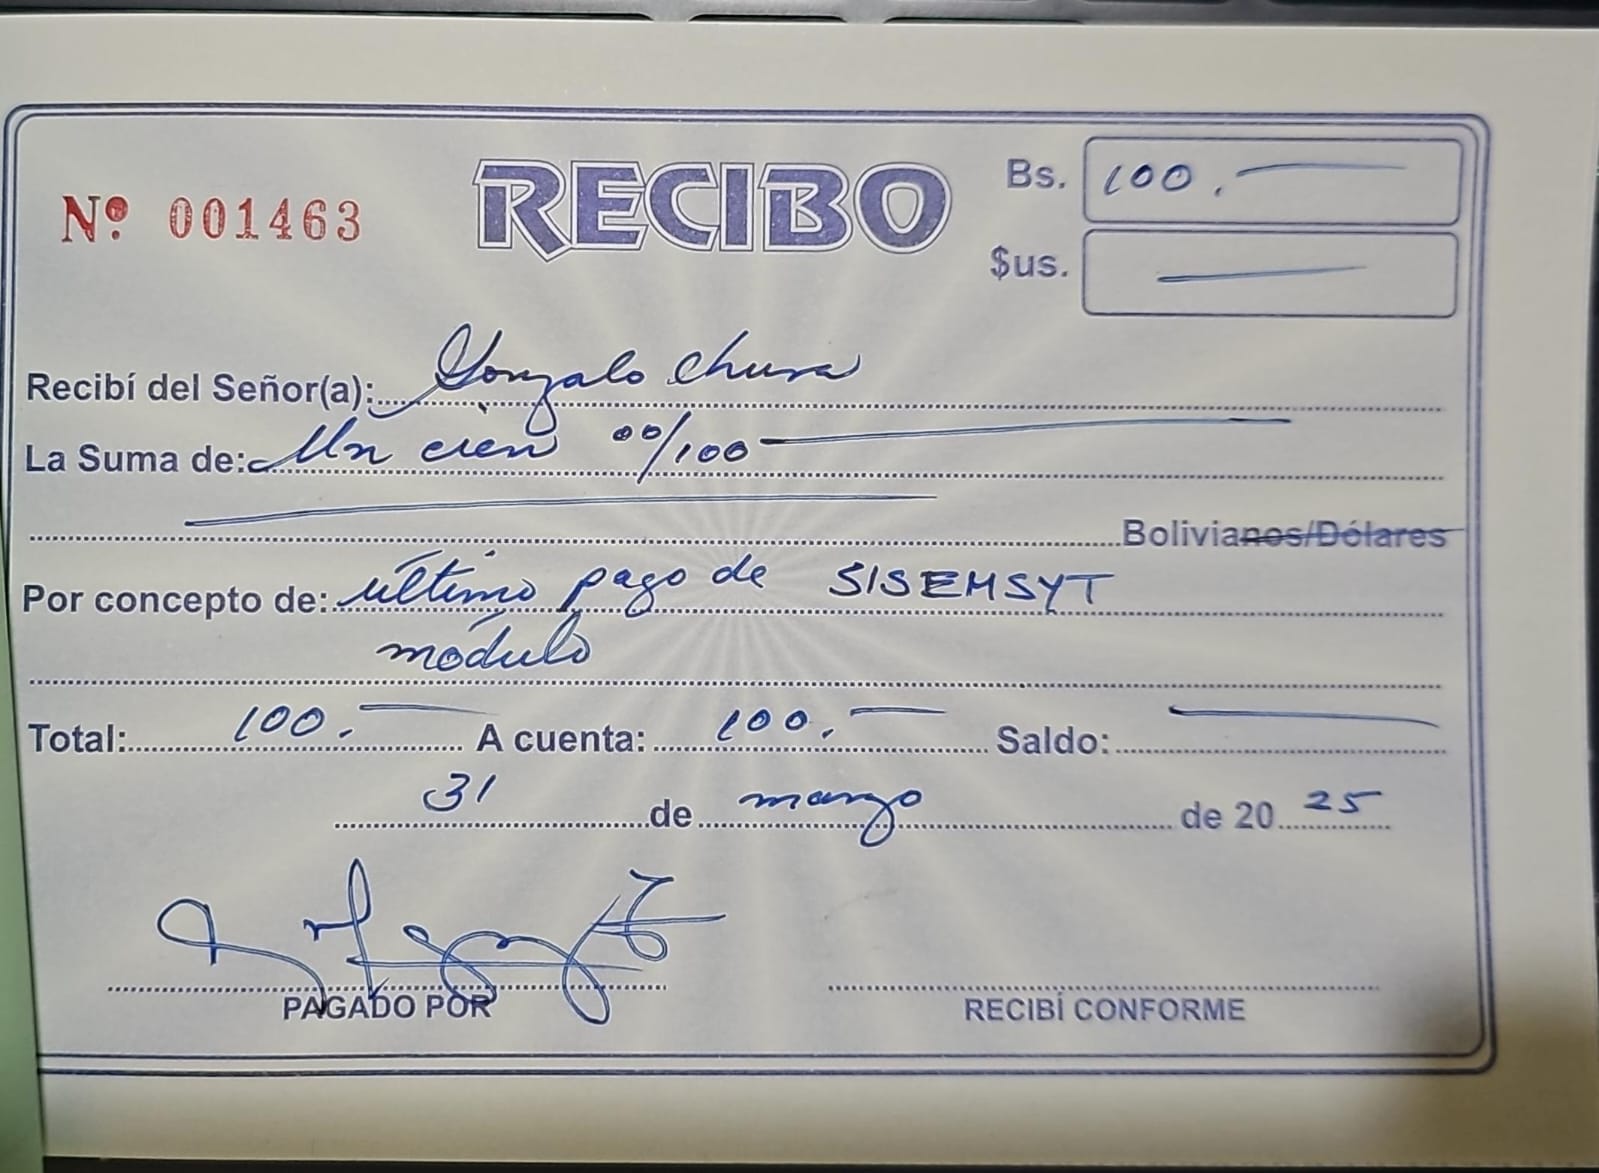 Nº 001463
RECIBO
Bs. 100.
$us.
Recibí del Señor(a): Gonzalo Chura
La Suma de: Un cien 00/100
Bolivianos/Dólares
Por concepto de: último pago de SISEMSYT
módulo
Total: 100. A cuenta: 100. Saldo:
31 de marzo de 2025
PAGADO POR
RECIBÍ CONFORME